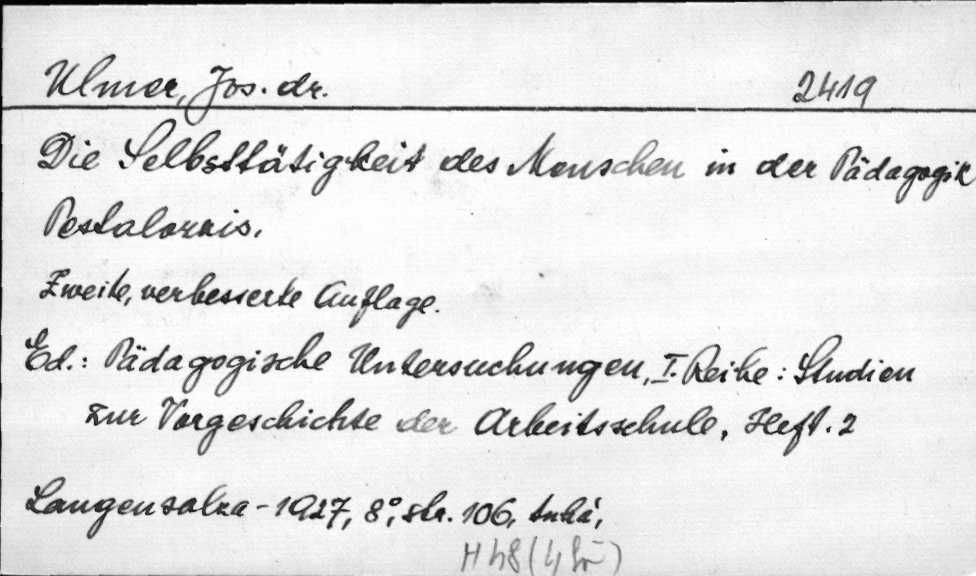 Ulmer, Jos. dr. 2419
Die Selbsttätigkeit des Menschen in der Pädagogik
Pestalozzis.
Zweite, verbesserte Auflage.
Ed.: Pädagogische Untersuchungen, I. Reihe: Studien
zur Vorgeschichte der Arbeitsschule, Heft. 2
Langensalza - 1927, 8°, str. 106, tuhá,